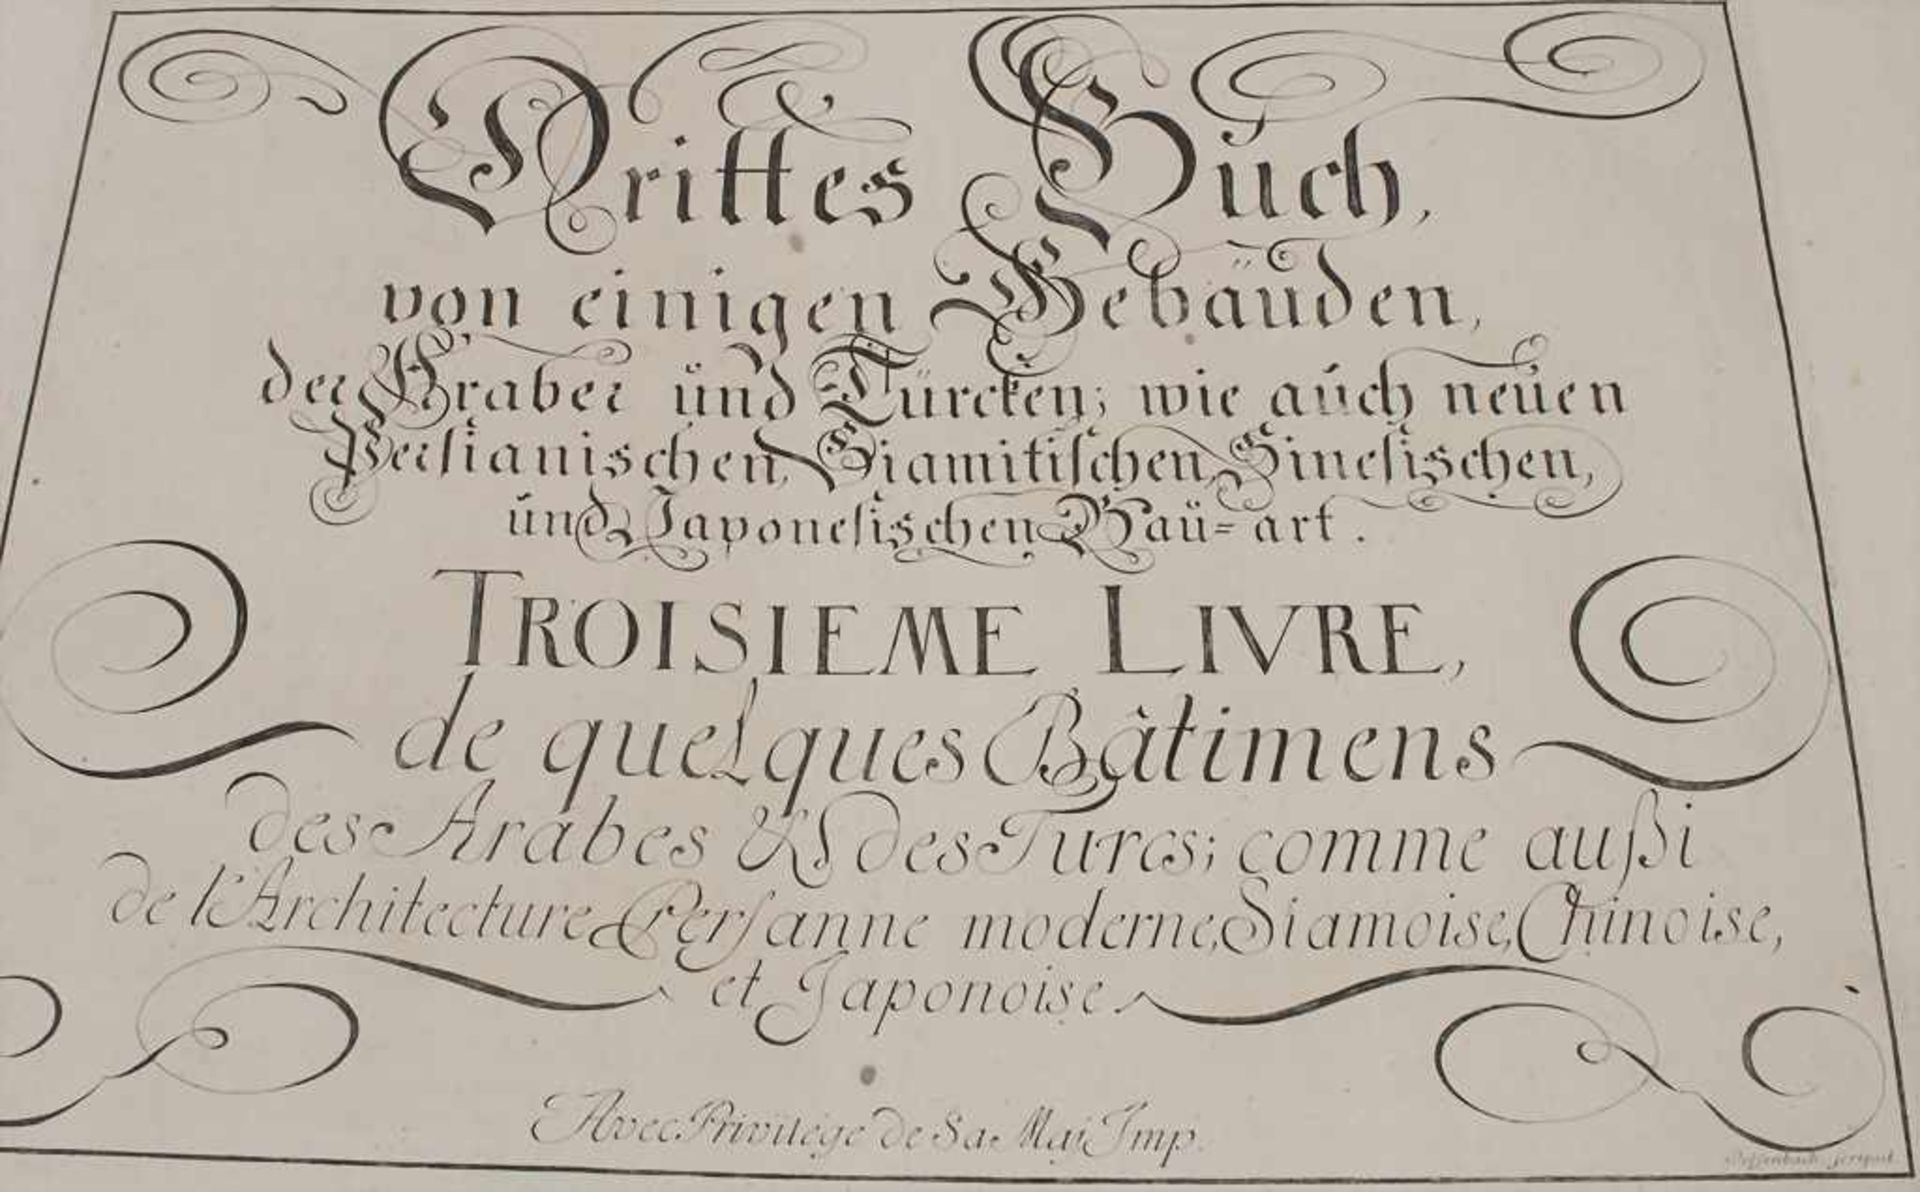 Drittes Büch,
von einigen Gebäüden,
der Araber ünd Türcken; wie aüch neüen
Persianischen, Siamitischen, Sinesischen,
ünd Japonesischen Baü=art.
TROISIEME LIVRE,
de quelques Bâtimens
des Arabes & des Turcs; comme außi
de l'Architecture Persanne moderne, Siamoise, Chinoise,
et Japonoise.
Avec Privilége de Sa Maj Imp.